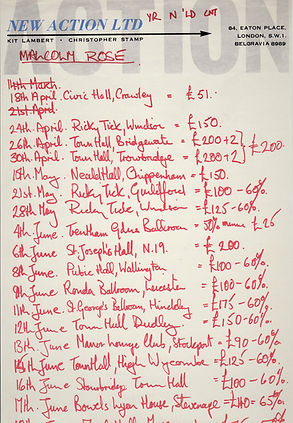 ACTION
NEW ACTION LTD
YR N'LD CNT
KIT LAMBERT · CHRISTOPHER STAMP
84, EATON PLACE,
LONDON, S.W.1.
BELGRAVIA 8989
MALCOLM ROSE
14th March.
18th April. Civic Hall, Crawley = £51.
21st April.
24th April. Ricky Tick, Windsor = £150.
26th April. Town Hall, Bridgewater = £200+2
30th April. Town Hall, Trowbridge = £200+2 } £200.
15th May. Neald Hall, Chippenham = £150.
21st May. Ricky Tick, Guildford = £100-60%.
28th May Ricky Tick, Windsor = £125-60%.
4th June. Trentham Gdns Ballroom = 50% minus £25
6th June St Joseph's Hall, N.19. = £200.
8th June. Public Hall, Wallington = £100-60%.
9th June Ronda Ballroom, Leicester = £100-60%.
11th June. St George's Ballroom, Hinckley = £175-60%
12th June Town Hall Dudley. = £150-60%.
13th June Manor Lounge Club, Stockport = £90-60%
15th June Town Hall, High Wycombe = £125-60%.
16th June Stourbridge Town Hall = £100-60%.
17th. June Bowes Lyon House, Stevenage = £140=65%.